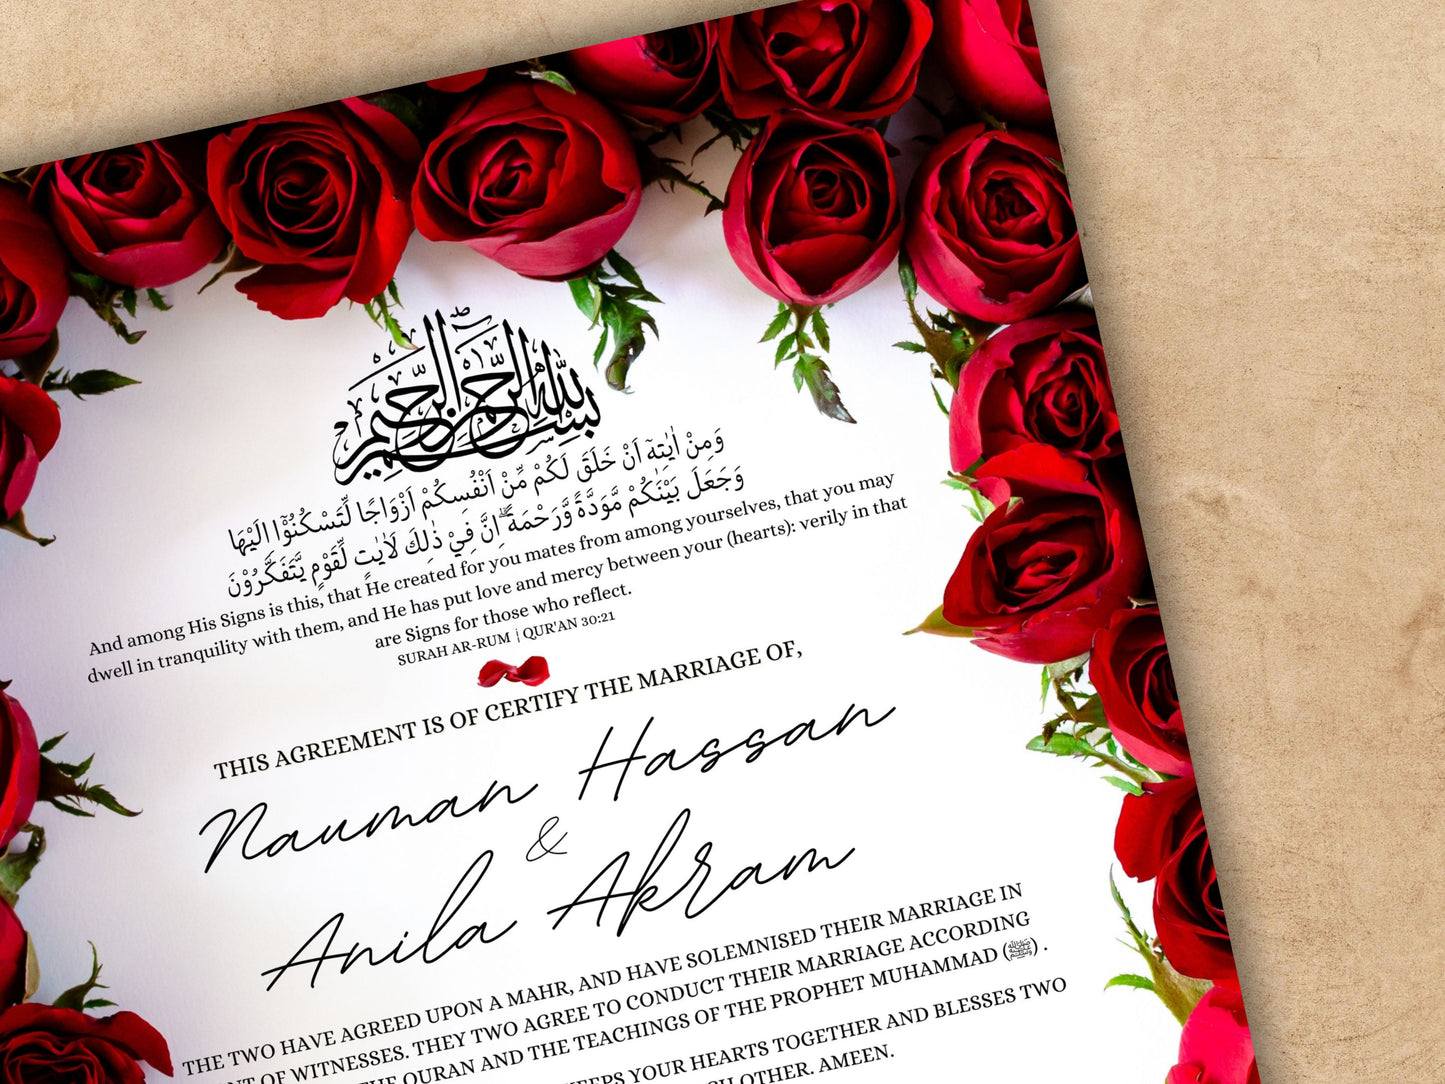 بسم الله الرحمن الرحيم
وَمِنْ اٰيٰتِهٖٓ اَنْ خَلَقَ لَكُمْ مِّنْ اَنْفُسِكُمْ اَزْوَاجًا لِّتَسْكُنُوْٓا اِلَيْهَا
وَجَعَلَ بَيْنَكُمْ مَّوَدَّةً وَّرَحْمَةً ۗاِنَّ فِيْ ذٰلِكَ لَاٰيٰتٍ لِّقَوْمٍ يَّتَفَكَّرُوْنَ
And among His Signs is this, that He created for you mates from among yourselves, that you may
dwell in tranquility with them, and He has put love and mercy between your (hearts): verily in that
are Signs for those who reflect.
SURAH AR-RUM | QUR'AN 30:21
THIS AGREEMENT IS OF CERTIFY THE MARRIAGE OF,
Nauman Hassan
&
Anila Akram
THE TWO HAVE AGREED UPON A MAHR, AND HAVE SOLEMNISED THEIR MARRIAGE IN
OF WITNESSES. THEY TWO AGREE TO CONDUCT THEIR MARRIAGE ACCORDING
QURAN AND THE TEACHINGS OF THE PROPHET MUHAMMAD (ﷺ) .
YOUR HEARTS TOGETHER AND BLESSES TWO
OTHER. AMEEN.